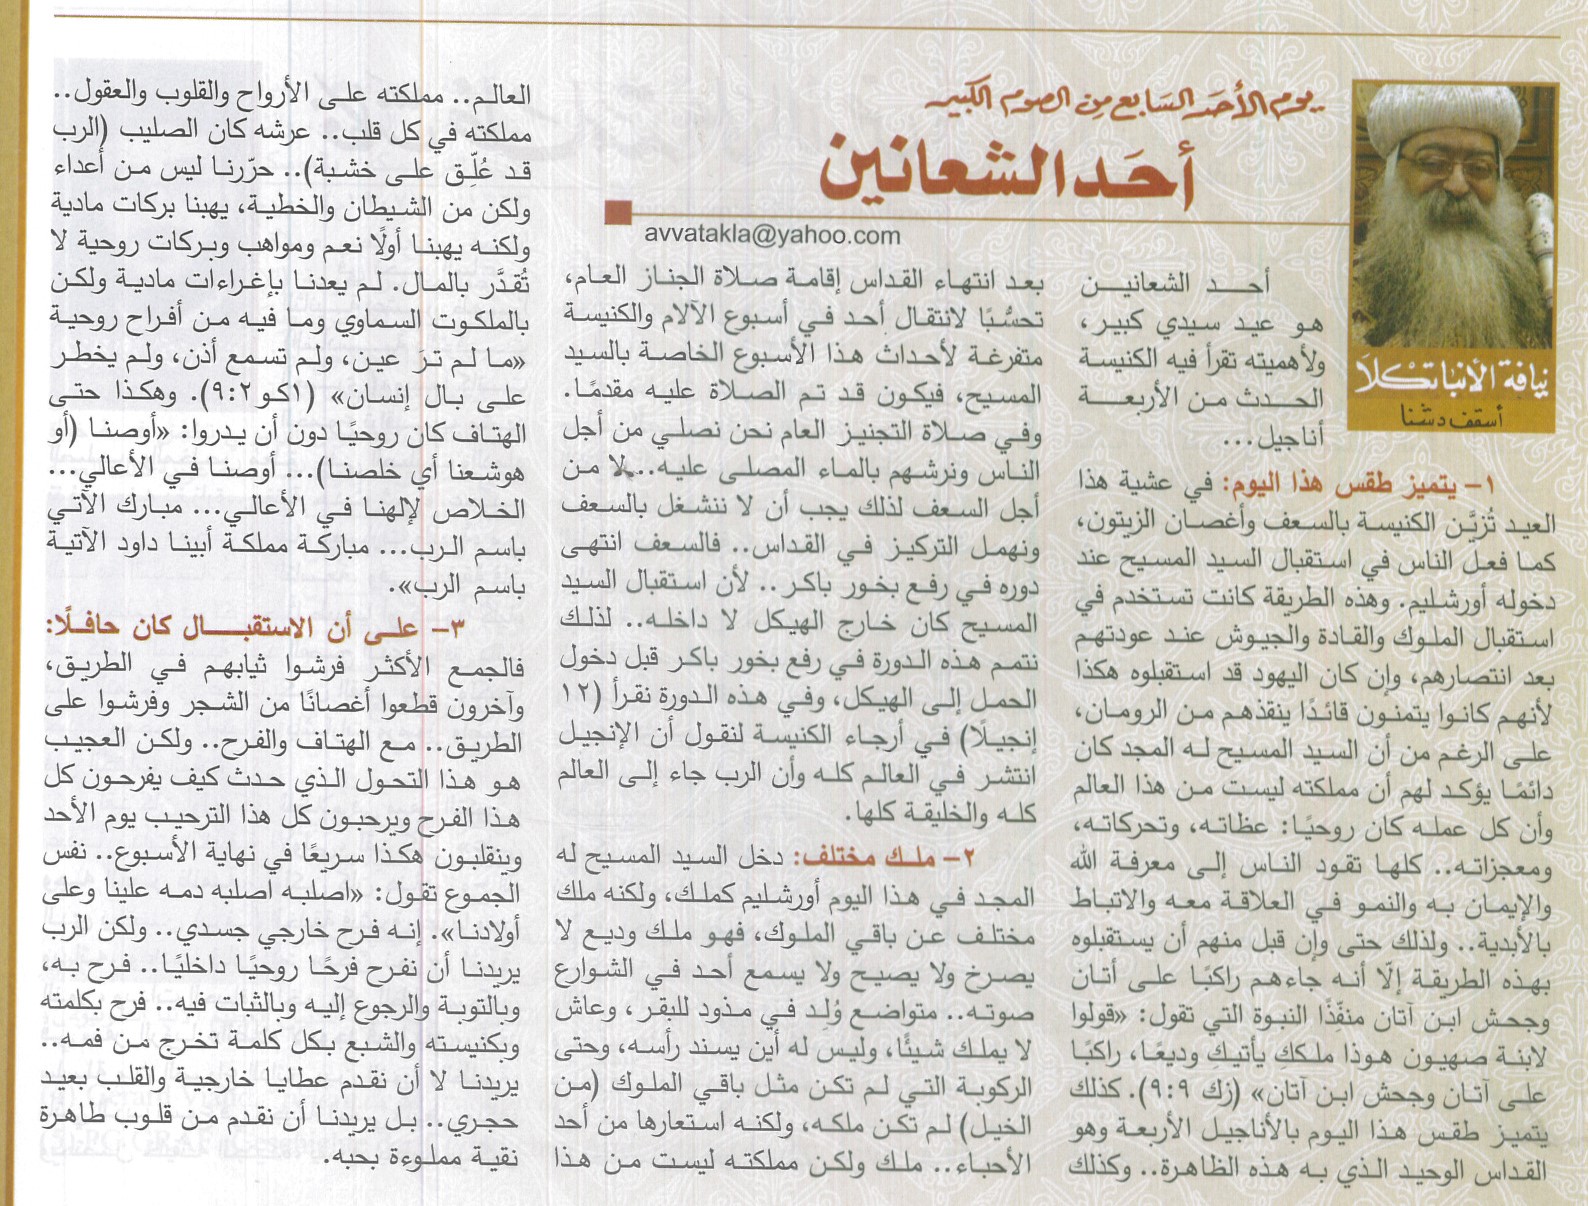 يوم الأحد السابع من الصوم الكبير
أحد الشعانين
avvatakla@yahoo.com
نيافة الأنبا تكلا
أسقف دشنا
أحــد الشعانيــن
هو عيد سيدي كبير،
ولأهميته تقرأ فيه الكنيسة
الحدث من الأربعـــة
أناجيل...
١- يتميز طقس هذا اليوم: في عشية هذا
العيد تُزيَّن الكنيسة بالسعف وأغصان الزيتون،
كما فعل الناس في استقبال السيد المسيح عند
دخوله أورشليم. وهذه الطريقة كانت تستخدم في
استقبال الملوك والقادة والجيوش عند عودتهم
بعد انتصارهم، وإن كان اليهود قد استقبلوه هكذا
لأنهم كانوا يتمنون قائدًا ينقذهم من الرومان،
على الرغم من أن السيد المسيح له المجد كان
دائمًا يؤكد لهم أن مملكته ليست من هذا العالم
وأن كل عمله كان روحيًا: عظاته، وتحركاته،
ومعجزاته.. كلها تقود الناس إلى معرفة الله
والإيمان به والنمو في العلاقة معه والاتباط
بالأبدية.. ولذلك حتى وإن قبل منهم أن يستقبلوه
بهذه الطريقة إلّا أنه جاءهم راكبًا على أتان
وجحش ابن آتان منفّذًا النبوة التي تقول: «قولوا
لابنة صهيون هوذا ملككِ يأتيكِ وديعًا، راكبًا
على آتان وجحش ابن آتان» (زك ٩:٩). كذلك
يتميز طقس هذا اليوم بالأناجيل الأربعة وهو
القداس الوحيد الذي به هذه الظاهرة.. وكذلك
بعد انتهاء القداس إقامة صلاة الجناز العام،
تحسُّبًا لانتقال أحد في أسبوع الآلام والكنيسة
متفرغة لأحداث هذا الأسبوع الخاصة بالسيد
المسيح، فيكون قد تم الصلاة عليه مقدمًا.
وفي صلاة التجنيز العام نحن نصلي من أجل
الناس ونرشهم بالماء المصلى عليه... لا من
أجل السعف لذلك يجب أن لا ننشغل بالسعف
ونهمل التركيز في القداس.. فالسعف انتهى
دوره في رفع بخور باكر.. لأن استقبال السيد
المسيح كان خارج الهيكل لا داخله.. لذلك
نتمم هذه الدورة في رفع بخور باكر قبل دخول
الحمل إلى الهيكل، وفي هذه الدورة نقرأ (١٢
إنجيلًا) في أرجاء الكنيسة لنقول أن الإنجيل
انتشر في العالم كله وأن الرب جاء إلى العالم
كله والخليقة كلها.
٢- ملك مختلف: دخل السيد المسيح له
المجد في هذا اليوم أورشليم كملك، ولكنه ملك
مختلف عن باقي الملوك، فهو ملك وديع لا
يصرخ ولا يصيح ولا يسمع أحد في الشوارع
صوته.. متواضع وُلِد في مذود للبقر، وعاش
لا يملك شيئًا، وليس له أين يسند رأسه، وحتى
الركوبة التي لم تكن مثل باقي الملوك (من
الخيل) لم تكن ملكه، ولكنه استعارها من أحد
الأحباء.. ملك ولكن مملكته ليست من هذا
العالم.. مملكته على الأرواح والقلوب والعقول..
مملكته في كل قلب.. عرشه كان الصليب (الرب
قد عُلِّق على خشبة).. حرّرنا ليس من أعداء
ولكن من الشيطان والخطية، يهبنا بركات مادية
ولكنه يهبنا أولًا نعم ومواهب وبركات روحية لا
تُقدَّر بالمال. لم يعدنا بإغراءات مادية ولكن
بالملكوت السماوي وما فيه من أفراح روحية
«ما لم ترَ عين، ولم تسمع أذن، ولم يخطر
على بال إنسان» (١كو٩:٢). وهكذا حتى
الهتاف كان روحيًا دون أن يدروا: «أوصنا (أو
هوشعنا أي خلصنا)... أوصنا في الأعالي...
الخلاص لإلهنا في الأعالي... مبارك الآتي
باسم الرب... مباركة مملكة أبينا داود الآتية
باسم الرب».
٣- على أن الاستقبال كان حافلًا:
فالجمع الأكثر فرشوا ثيابهم في الطريق،
وآخرون قطعوا أغصانًا من الشجر وفرشوا على
الطريق.. مع الهتاف والفرح.. ولكن العجيب
هو هذا التحول الذي حدث كيف يفرحون كل
هذا الفرح ويرحبون كل هذا الترحيب يوم الأحد
وينقلبون هكذا سريعًا في نهاية الأسبوع.. نفس
الجموع تقول: «اصلبه اصلبه دمه علينا وعلى
أولادنا». إنه فرح خارجي جسدي.. ولكن الرب
يريدنا أن نفرح فرحًا روحيًا داخليًا.. فرح به،
وبالتوبة والرجوع إليه وبالثبات فيه.. فرح بكلمته
وبكنيسته والشبع بكل كلمة تخرج من فمه..
يريدنا لا أن نقدم عطايا خارجية والقلب بعيد
حجري.. بل يريدنا أن نقدم من قلوب طاهرة
نقية مملوءة بحبه.